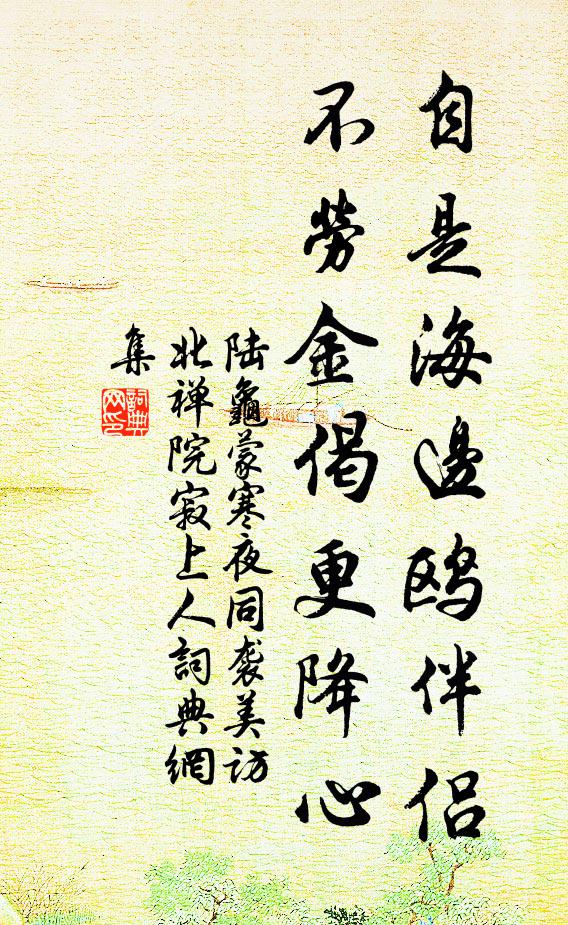 自是海邊鸥伴侣
不劳金偈更降心
陆龜蒙寒夜同袭美访
北禅院寂上人詞典網
集
詞典
网印